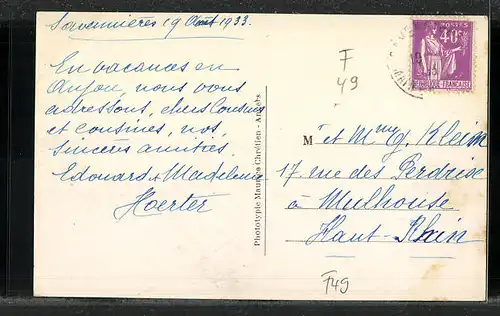 Savennières 19 Août 1933.
En vacances en
Anjou, nous vous
adressons, chers Cousins
et cousines, nos
sincères amitiés.
Edouard et Madeleine
Hoerter
Phototypie Maurice Chrétien - Angers
F
49
POSTES
40c
RÉPUBLIQUE FRANÇAISE
Mr et Mme G. Klein
17 rue des Perdrix
à Mulhouse
Haut-Rhin
F49